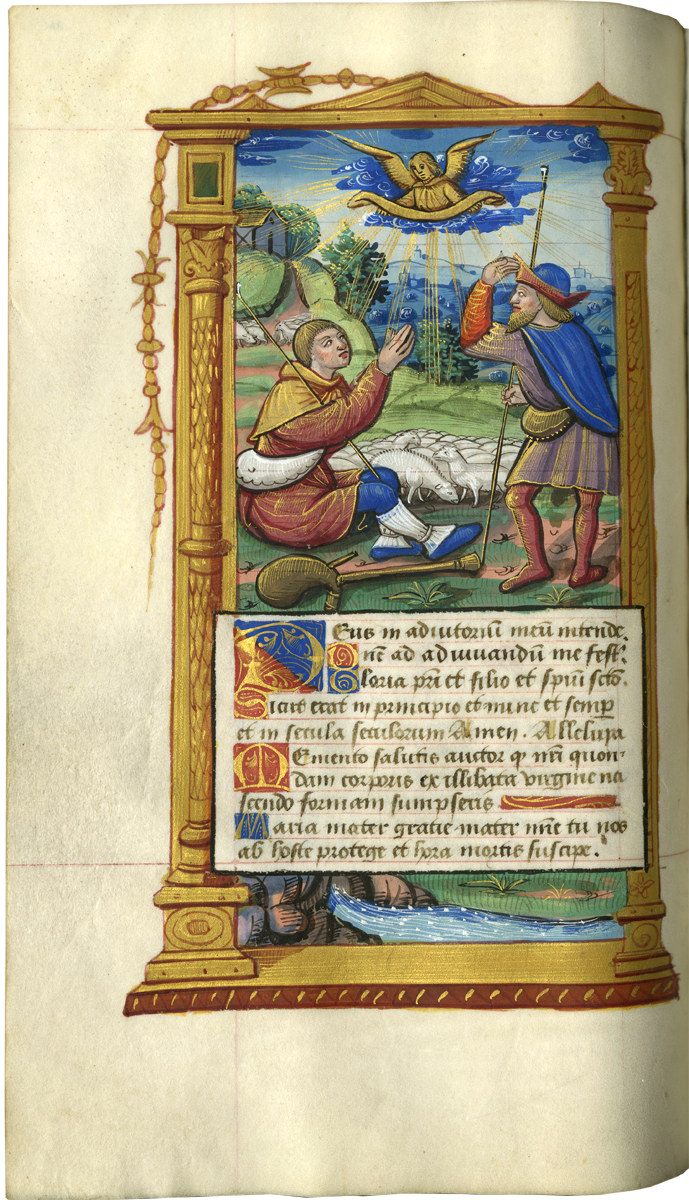 Deus in adiutoriū meū intende.
Dn̄e ad adiuuandū me fest:
Gloria pr̄i et filio et spiūi sctō.
Sicut erat in principio et nunc et semꝑ
et in secula seculorum Amen. Alleluya
Memento salutis auctor ꝙ nr̄i quon-
dam corporis ex illibata virgine na
scendo formam sumpseris
Maria mater gratie mater mīe tu nos
ab hoste protege et hora mortis suscipe.